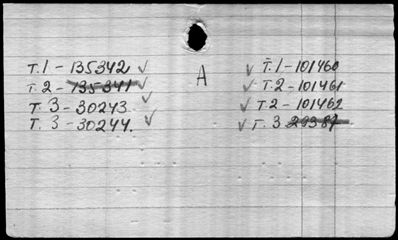 T.1 - 135342 ✓
T.2 - 135341 ✓
T. 3 - 30243. ✓
T. 3 - 30244. ✓
A
✓ T.1 - 101460
✓ T.2 - 101461
✓ T.2 - 101462
✓ T.3 29387